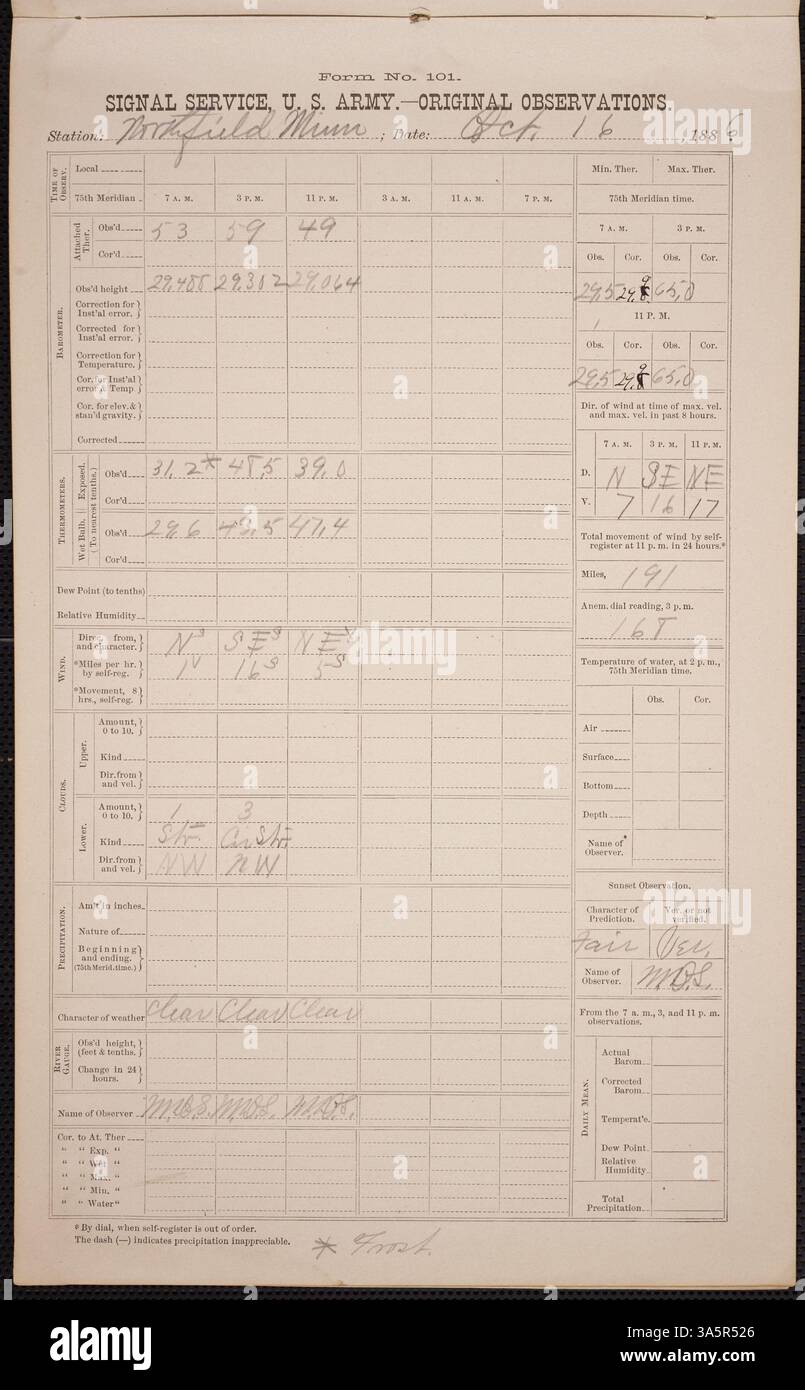 Form No. 101.
SIGNAL SERVICE, U. S. ARMY.—ORIGINAL OBSERVATIONS.
Station: Northfield Minn ; Date: Oct. 16 , 1886
TIME OF OBSERV.
Local
75th Meridian 7 A. M. 3 P. M. 11 P. M. 3 A. M. 11 A. M. 7 P. M.
BAROMETER.
Attached Ther.
Obs'd 53 59 49
Cor'd
Obs'd height 29,302 29,064
Correction for Inst'al error.
Corrected for Inst'al error.
Correction for Temperature.
Cor. for Inst'al error & Temp
Cor. for elev. & stan'd gravity.
Corrected
THERMOMETERS.
(To nearest tenths.)
Exposed.
Obs'd 31,2* 48,5 39,0
Cor'd
Wet Bulb.
Obs'd 29,6 41,4
Cor'd
Dew Point (to tenths)
Relative Humidity
WIND.
Direc. from, and character. N S SE S NE
*Miles per hr. by self-reg. 1 16 S 5 S
*Movement, 8 hrs., self-reg.
CLOUDS.
Upper.
Amount, 0 to 10.
Kind
Dir. from and vel.
Lower.
Amount, 0 to 10. 1 3
Kind Str. Cir Str.
Dir. from and vel. NW NW
PRECIPITATION.
Am't in inches
Nature of
Beginning and ending. (75th Merid. time.)
Character of weather Clear Clear Clear
RIVER GAUGE.
Obs'd height, (feet & tenths.
Change in 24 hours.
Name of Observer M.D.S. M.D.S. M.D.S.
Cor. to At. Ther
" " Exp. "
" " Wet "
" " Max. "
" " Min. "
" " Water"
* By dial, when self-register is out of order.
The dash (—) indicates precipitation inappreciable.
* Frost.
Min. Ther. Max. Ther.
75th Meridian time.
7 A. M. 3 P. M.
Obs. Cor. Obs. Cor.
29,5 65,0
11 P. M.
Obs. Cor. Obs. Cor.
29,5 65,0
Dir. of wind at time of max. vel. and max. vel. in past 8 hours.
7 A. M. 3 P. M. 11 P. M.
D. N SE NE
V. 7 16 17
Total movement of wind by self-register at 11 p. m. in 24 hours.*
Miles, 191
Anem. dial reading, 3 p.m.
168
Temperature of water, at 2 p. m., 75th Meridian time.
Obs. Cor.
Air
Surface
Bottom
Depth
Name of Observer.*
Sunset Observation.
Character of Prediction. Ver. or not verified.
Fair Ver.
Name of Observer. M.D.S.
From the 7 a. m., 3, and 11 p. m. observations.
DAILY MEAN.
Actual Barom
Corrected Barom
Temperat'e.
Dew Point
Relative Humidity
Total Precipitation.
alamy
alamy
Image ID: 3A5R526
www.alamy.com